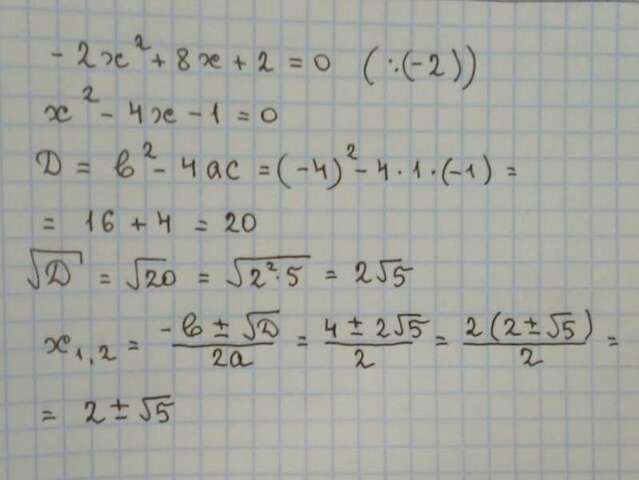 -2x² + 8x + 2 = 0 (:(-2))
x² - 4x - 1 = 0
D = b² - 4ac = (-4)² - 4·1·(-1) =
= 16 + 4 = 20
√D = √20 = √(2²·5) = 2√5
x₁,₂ = (-b ± √D)/(2a) = (4 ± 2√5)/2 = (2(2 ± √5))/2 =
= 2 ± √5